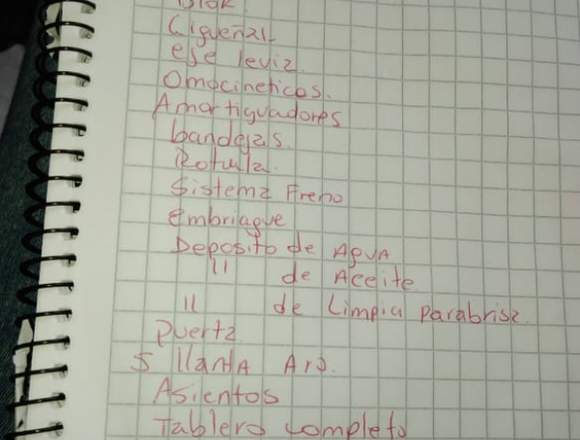 Cigueñal
eje leviz
Omocineticos.
Amortiguadores
bandejas.
Rotula.
Sistema Freno
embriague
Deposito de Agua
11 de Aceite
11 de Limpia parabrisa
puerta
5 llanta Aro.
Asientos
Tablero completo